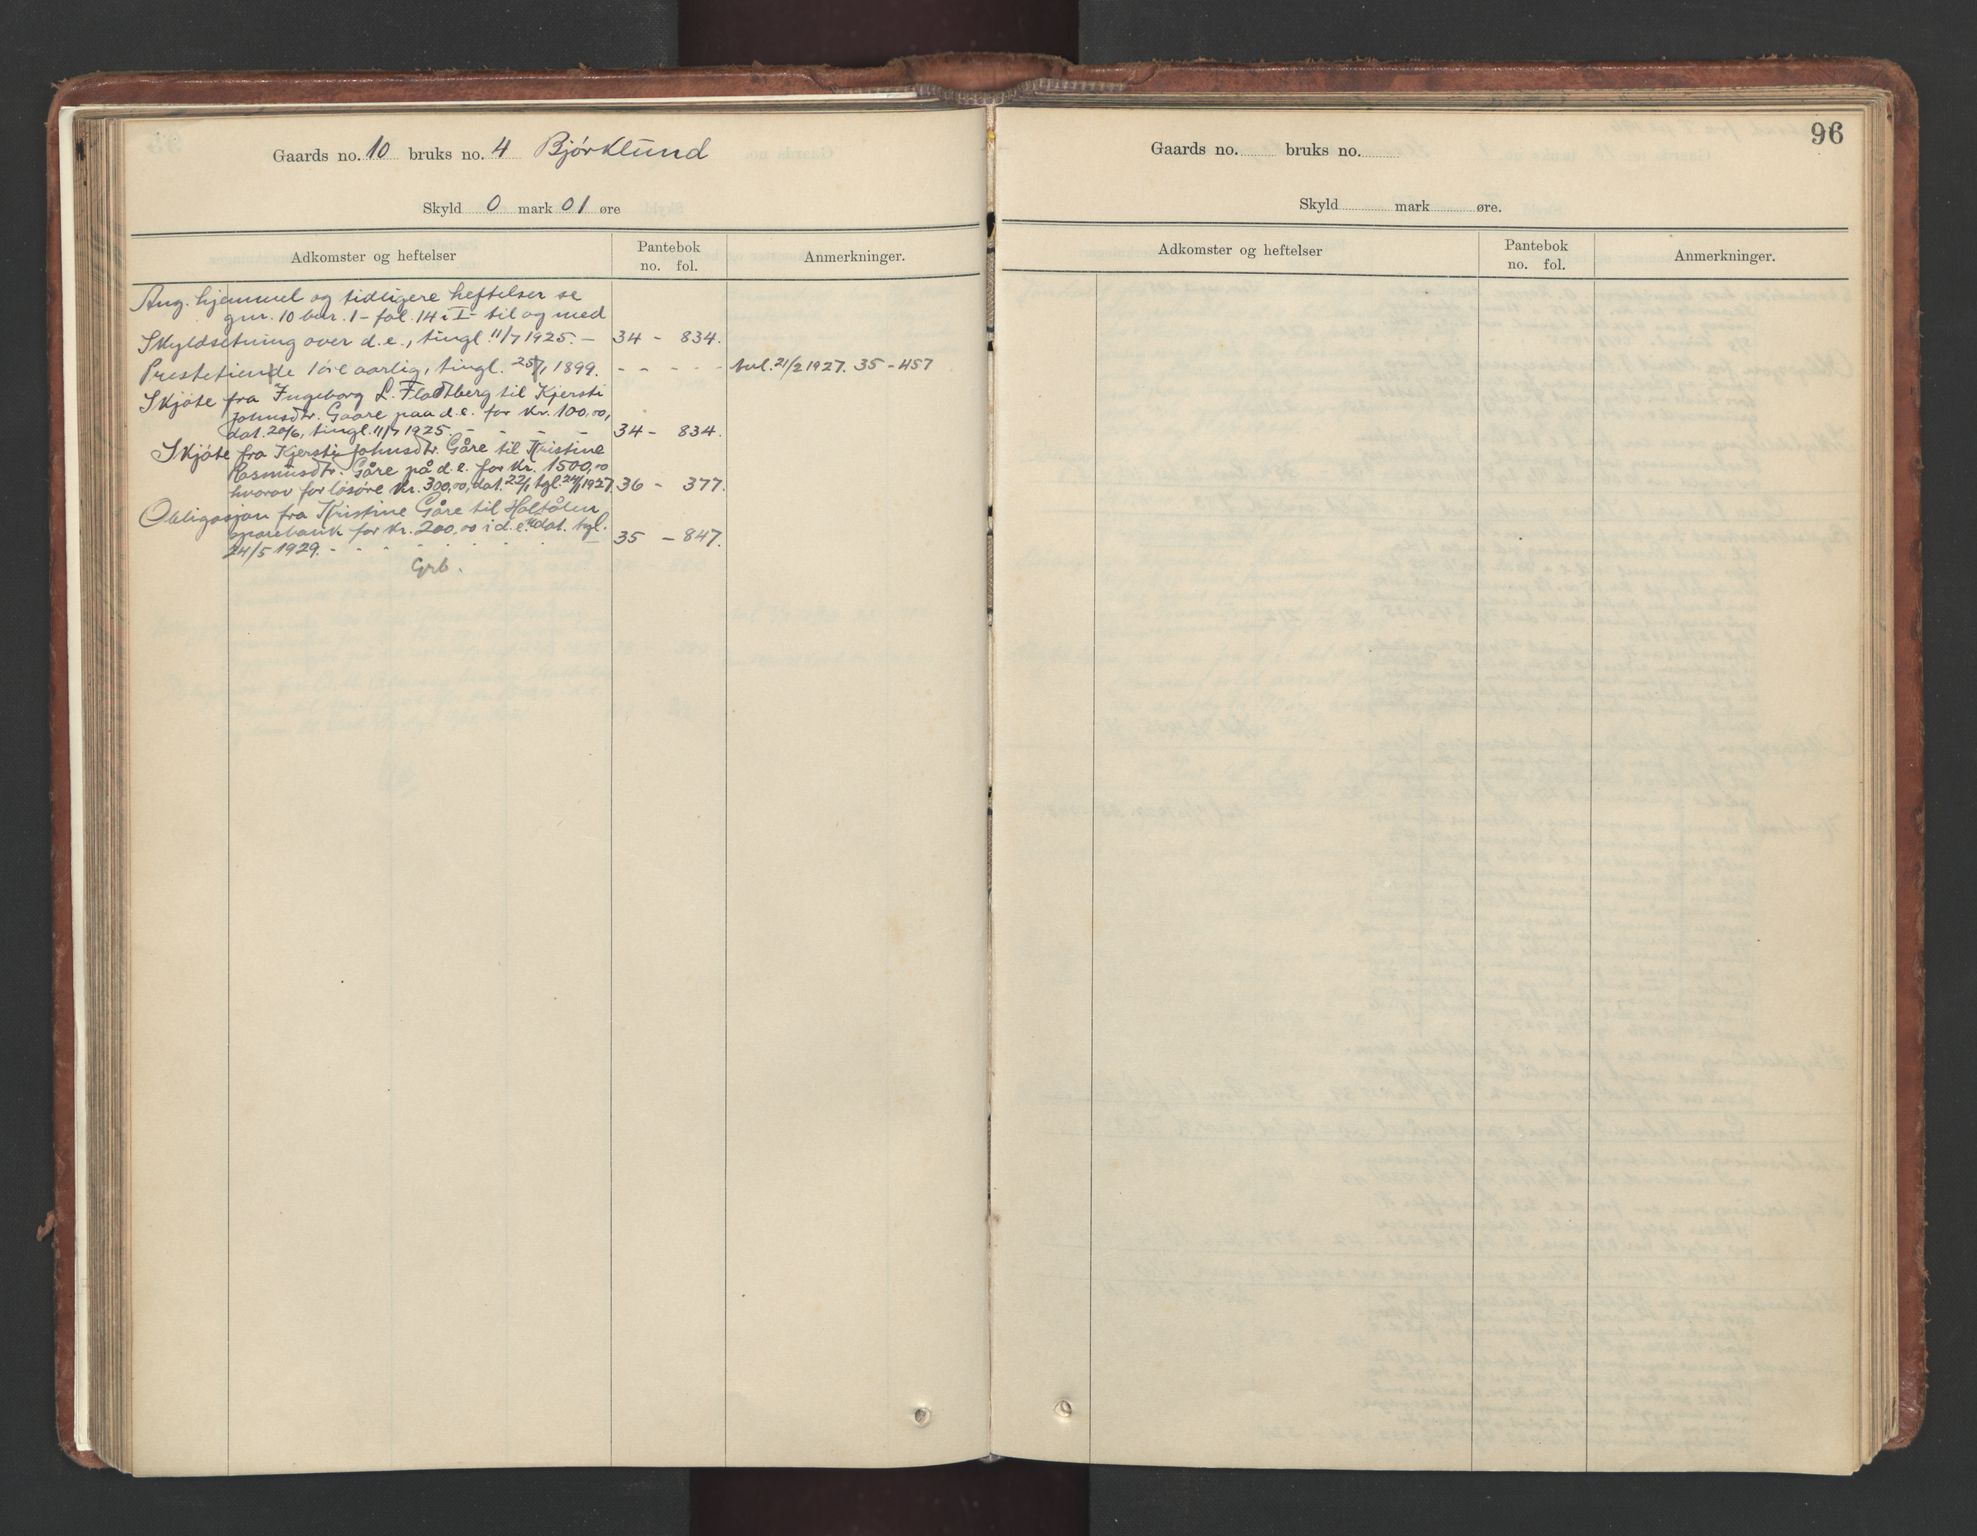 Gaards no. 10 bruks no. 4 Bjørklund
Skyld 0 mark 01 øre
Adkomster og heftelser Pantebok no. fol. Anmerkninger.
Ang. hjemmel og tidligere heftelser se
gnr. 10 bnr. 1 - fol. 14 i I - til og med
Skyldsetning over d.e., tingl. 11/7 1925. - 34 - 834.
Prestetiende 1 øre aarlig, tingl. 25/1 1899. - - - - - avl. 21/2 1927. 35 - 457
Skjøte fra Ingeborg L. Flatberg til Kjersti
Johnsdtr. Gaare paa d.e. for kr. 100,00,
dat. 20/6, tingl. 11/7 1925. - - - - 34 - 834.
Skjøte fra Kjersti Johnsdtr. Gåre til Kristine
Rasmusdtr. Gåre på d.e. for kr. 1500,00
hvorav for løsøre kr. 300,00, dat. 22/1 tgl. 24/1 1927. 36 - 377.
Obligasjon fra Kristine Gåre til Holtålen
sparebank for kr. 200,00 i d.e. dat. tgl.
24/5 1929. - - - - - - - 35 - 847.
Grb.
96
Gaards no. bruks no.
Skyld mark øre.
Adkomster og heftelser Pantebok no. fol. Anmerkninger.